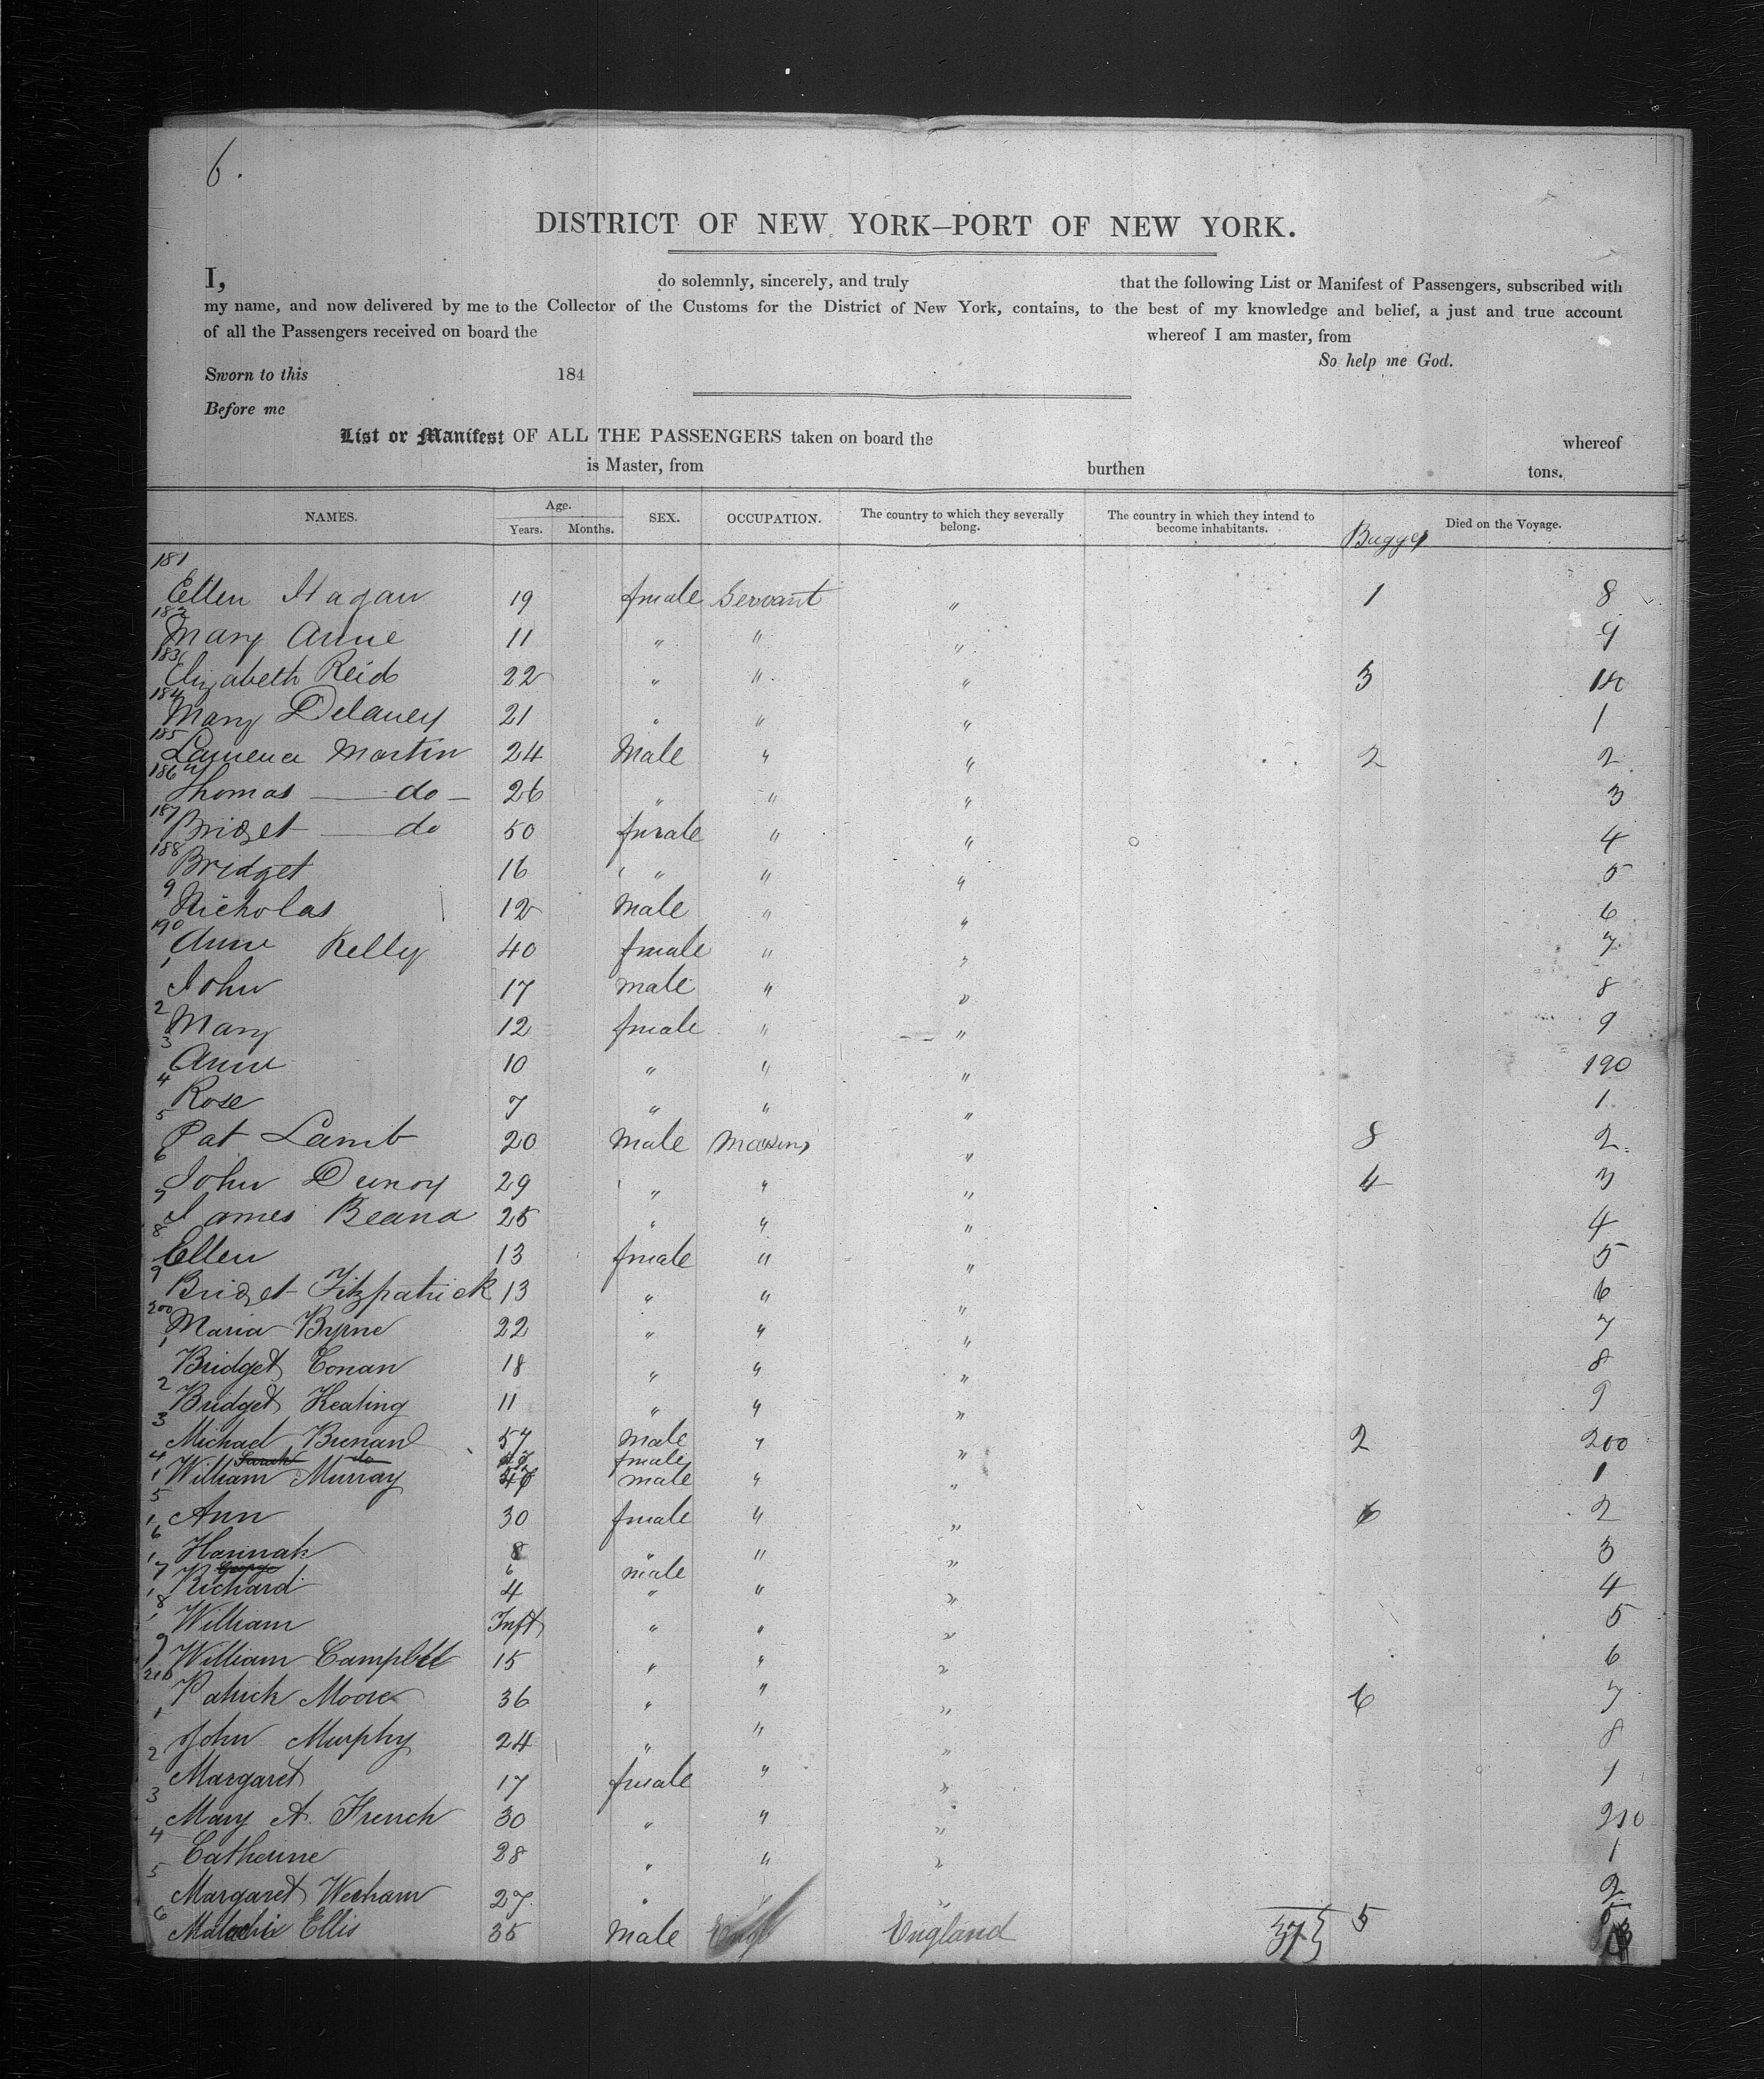 6.
DISTRICT OF NEW YORK—PORT OF NEW YORK.
I, do solemnly, sincerely, and truly that the following List or Manifest of Passengers, subscribed with
my name, and now delivered by me to the Collector of the Customs for the District of New York, contains, to the best of my knowledge and belief, a just and true account
of all the Passengers received on board the whereof I am master, from
So help me God.
Sworn to this 184
Before me
List or Manifest OF ALL THE PASSENGERS taken on board the whereof
is Master, from burthen tons.
NAMES. Age. Years. Months. SEX. OCCUPATION. The country to which they severally belong. The country in which they intend to become inhabitants. Died on the Voyage.
181 Ellen Hagan 19 female Servant " 1 8
182 Mary Anne 11 " " " 9
183 Elizabeth Reid 22 " " " 3 180
184 Mary Delaney 21 " " " 1
185 Laurence Martin 24 Male " " 2 2
186 Thomas — do — 26 " " " 3
187 Bridget — do 50 female " " 4
188 Bridget 16 " " " 5
9 Nicholas 12 Male " " 6
190 Anne Kelly 40 female " " 7
1 John 17 male " " 8
2 Mary 12 female " " 9
3 Anne 10 " " " 190
4 Rose 7 " " " 1
5 Pat Lamb 20 Male " 8 2
6 John 29 " " " 4 3
7 James 25 " " " 4
8 Ellen 13 female " " 5
9 Bridget Fitzpatrick 13 " " " 6
200 Maria Byrne 22 " " " 7
1 Bridget Conan 18 " " " 8
2 Bridget Keating 11 " " " 9
3 Michael Brenan 57 male " " 2 200
Sarah do female
4 William Murray male " " 1
5 Ann 30 female " " 6 2
6 Hannah 8 " " " 3
George 6 male
7 Richard 4 " " " 4
8 William Inft " " " 5
9 William Campbell 15 " " " 6
210 Patrick Moore 36 " " " 6 7
1 John Murphy 24 " " " 8
2 Margaret 17 female " " 9
3 Mary A. French 30 " " " 210
4 Catherine 28 " " " 1
5 Margaret 27 " " " 2
6 Malachi Ellis 35 Male England 37 5